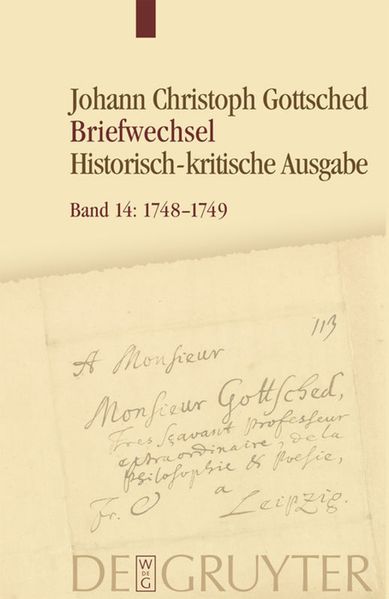 Johann Christoph Gottsched
Briefwechsel
Historisch-kritische Ausgabe
Band 14: 1748–1749
113
A Monsieur
Monsieur Gottsched,
Tres Sçavant Professeur
extraordinaire, de la
Philosophie & Poesie,
Fr. a
Leipzig.
DE GRUYTER
W
DE
G